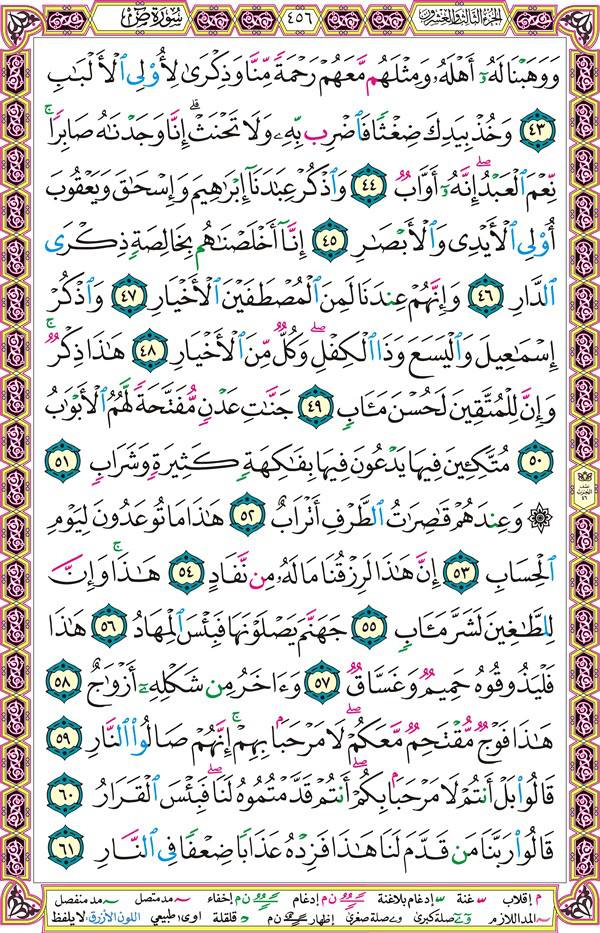 سُورَةُ ص
٤٥٦
الجزء الثالث والعشرون
وَوَهَبْنَا لَهُۥٓ أَهْلَهُۥ وَمِثْلَهُم مَّعَهُمْ رَحْمَةً مِّنَّا وَذِكْرَىٰ لِأُو۟لِى ٱلْأَلْبَـٰبِ
٤٣ وَخُذْ بِيَدِكَ ضِغْثًا فَٱضْرِب بِّهِۦ وَلَا تَحْنَثْ ۗ إِنَّا وَجَدْنَـٰهُ صَابِرًا ۚ
نِّعْمَ ٱلْعَبْدُ ۖ إِنَّهُۥٓ أَوَّابٌ ٤٤ وَٱذْكُرْ عِبَـٰدَنَآ إِبْرَٰهِيمَ وَإِسْحَـٰقَ وَيَعْقُوبَ
أُو۟لِى ٱلْأَيْدِى وَٱلْأَبْصَـٰرِ ٤٥ إِنَّآ أَخْلَصْنَـٰهُم بِخَالِصَةٍ ذِكْرَى
ٱلدَّارِ ٤٦ وَإِنَّهُمْ عِندَنَا لَمِنَ ٱلْمُصْطَفَيْنَ ٱلْأَخْيَارِ ٤٧ وَٱذْكُرْ
إِسْمَـٰعِيلَ وَٱلْيَسَعَ وَذَا ٱلْكِفْلِ ۖ وَكُلٌّ مِّنَ ٱلْأَخْيَارِ ٤٨ هَـٰذَا ذِكْرٌ ۚ
وَإِنَّ لِلْمُتَّقِينَ لَحُسْنَ مَـَٔابٍ ٤٩ جَنَّـٰتِ عَدْنٍ مُّفَتَّحَةً لَّهُمُ ٱلْأَبْوَٰبُ
٥٠ مُتَّكِـِٔينَ فِيهَا يَدْعُونَ فِيهَا بِفَـٰكِهَةٍ كَثِيرَةٍ وَشَرَابٍ ٥١
۞ وَعِندَهُمْ قَـٰصِرَٰتُ ٱلطَّرْفِ أَتْرَابٌ ٥٢ هَـٰذَا مَا تُوعَدُونَ لِيَوْمِ
ٱلْحِسَابِ ٥٣ إِنَّ هَـٰذَا لَرِزْقُنَا مَا لَهُۥ مِن نَّفَادٍ ٥٤ هَـٰذَا ۚ وَإِنَّ
لِلطَّـٰغِينَ لَشَرَّ مَـَٔابٍ ٥٥ جَهَنَّمَ يَصْلَوْنَهَا فَبِئْسَ ٱلْمِهَادُ ٥٦ هَـٰذَا
فَلْيَذُوقُوهُ حَمِيمٌ وَغَسَّاقٌ ٥٧ وَءَاخَرُ مِن شَكْلِهِۦٓ أَزْوَٰجٌ ٥٨
هَـٰذَا فَوْجٌ مُّقْتَحِمٌ مَّعَكُمْ ۖ لَا مَرْحَبًۢا بِهِمْ ۚ إِنَّهُمْ صَالُوا۟ ٱلنَّارِ ٥٩
قَالُوا۟ بَلْ أَنتُمْ لَا مَرْحَبًۢا بِكُمْ ۖ أَنتُمْ قَدَّمْتُمُوهُ لَنَا ۖ فَبِئْسَ ٱلْقَرَارُ ٦٠
قَالُوا۟ رَبَّنَا مَن قَدَّمَ لَنَا هَـٰذَا فَزِدْهُ عَذَابًا ضِعْفًا فِى ٱلنَّارِ ٦١
م إقلاب غنة إدغام بلاغنة ن م إدغام ن م إخفاء مد متصل مد منفصل
المد اللازم صلة كبرى صلة صغرى إظهار ن م قلقلة اوى طبيعي اللون الأزرق لا يلفظ